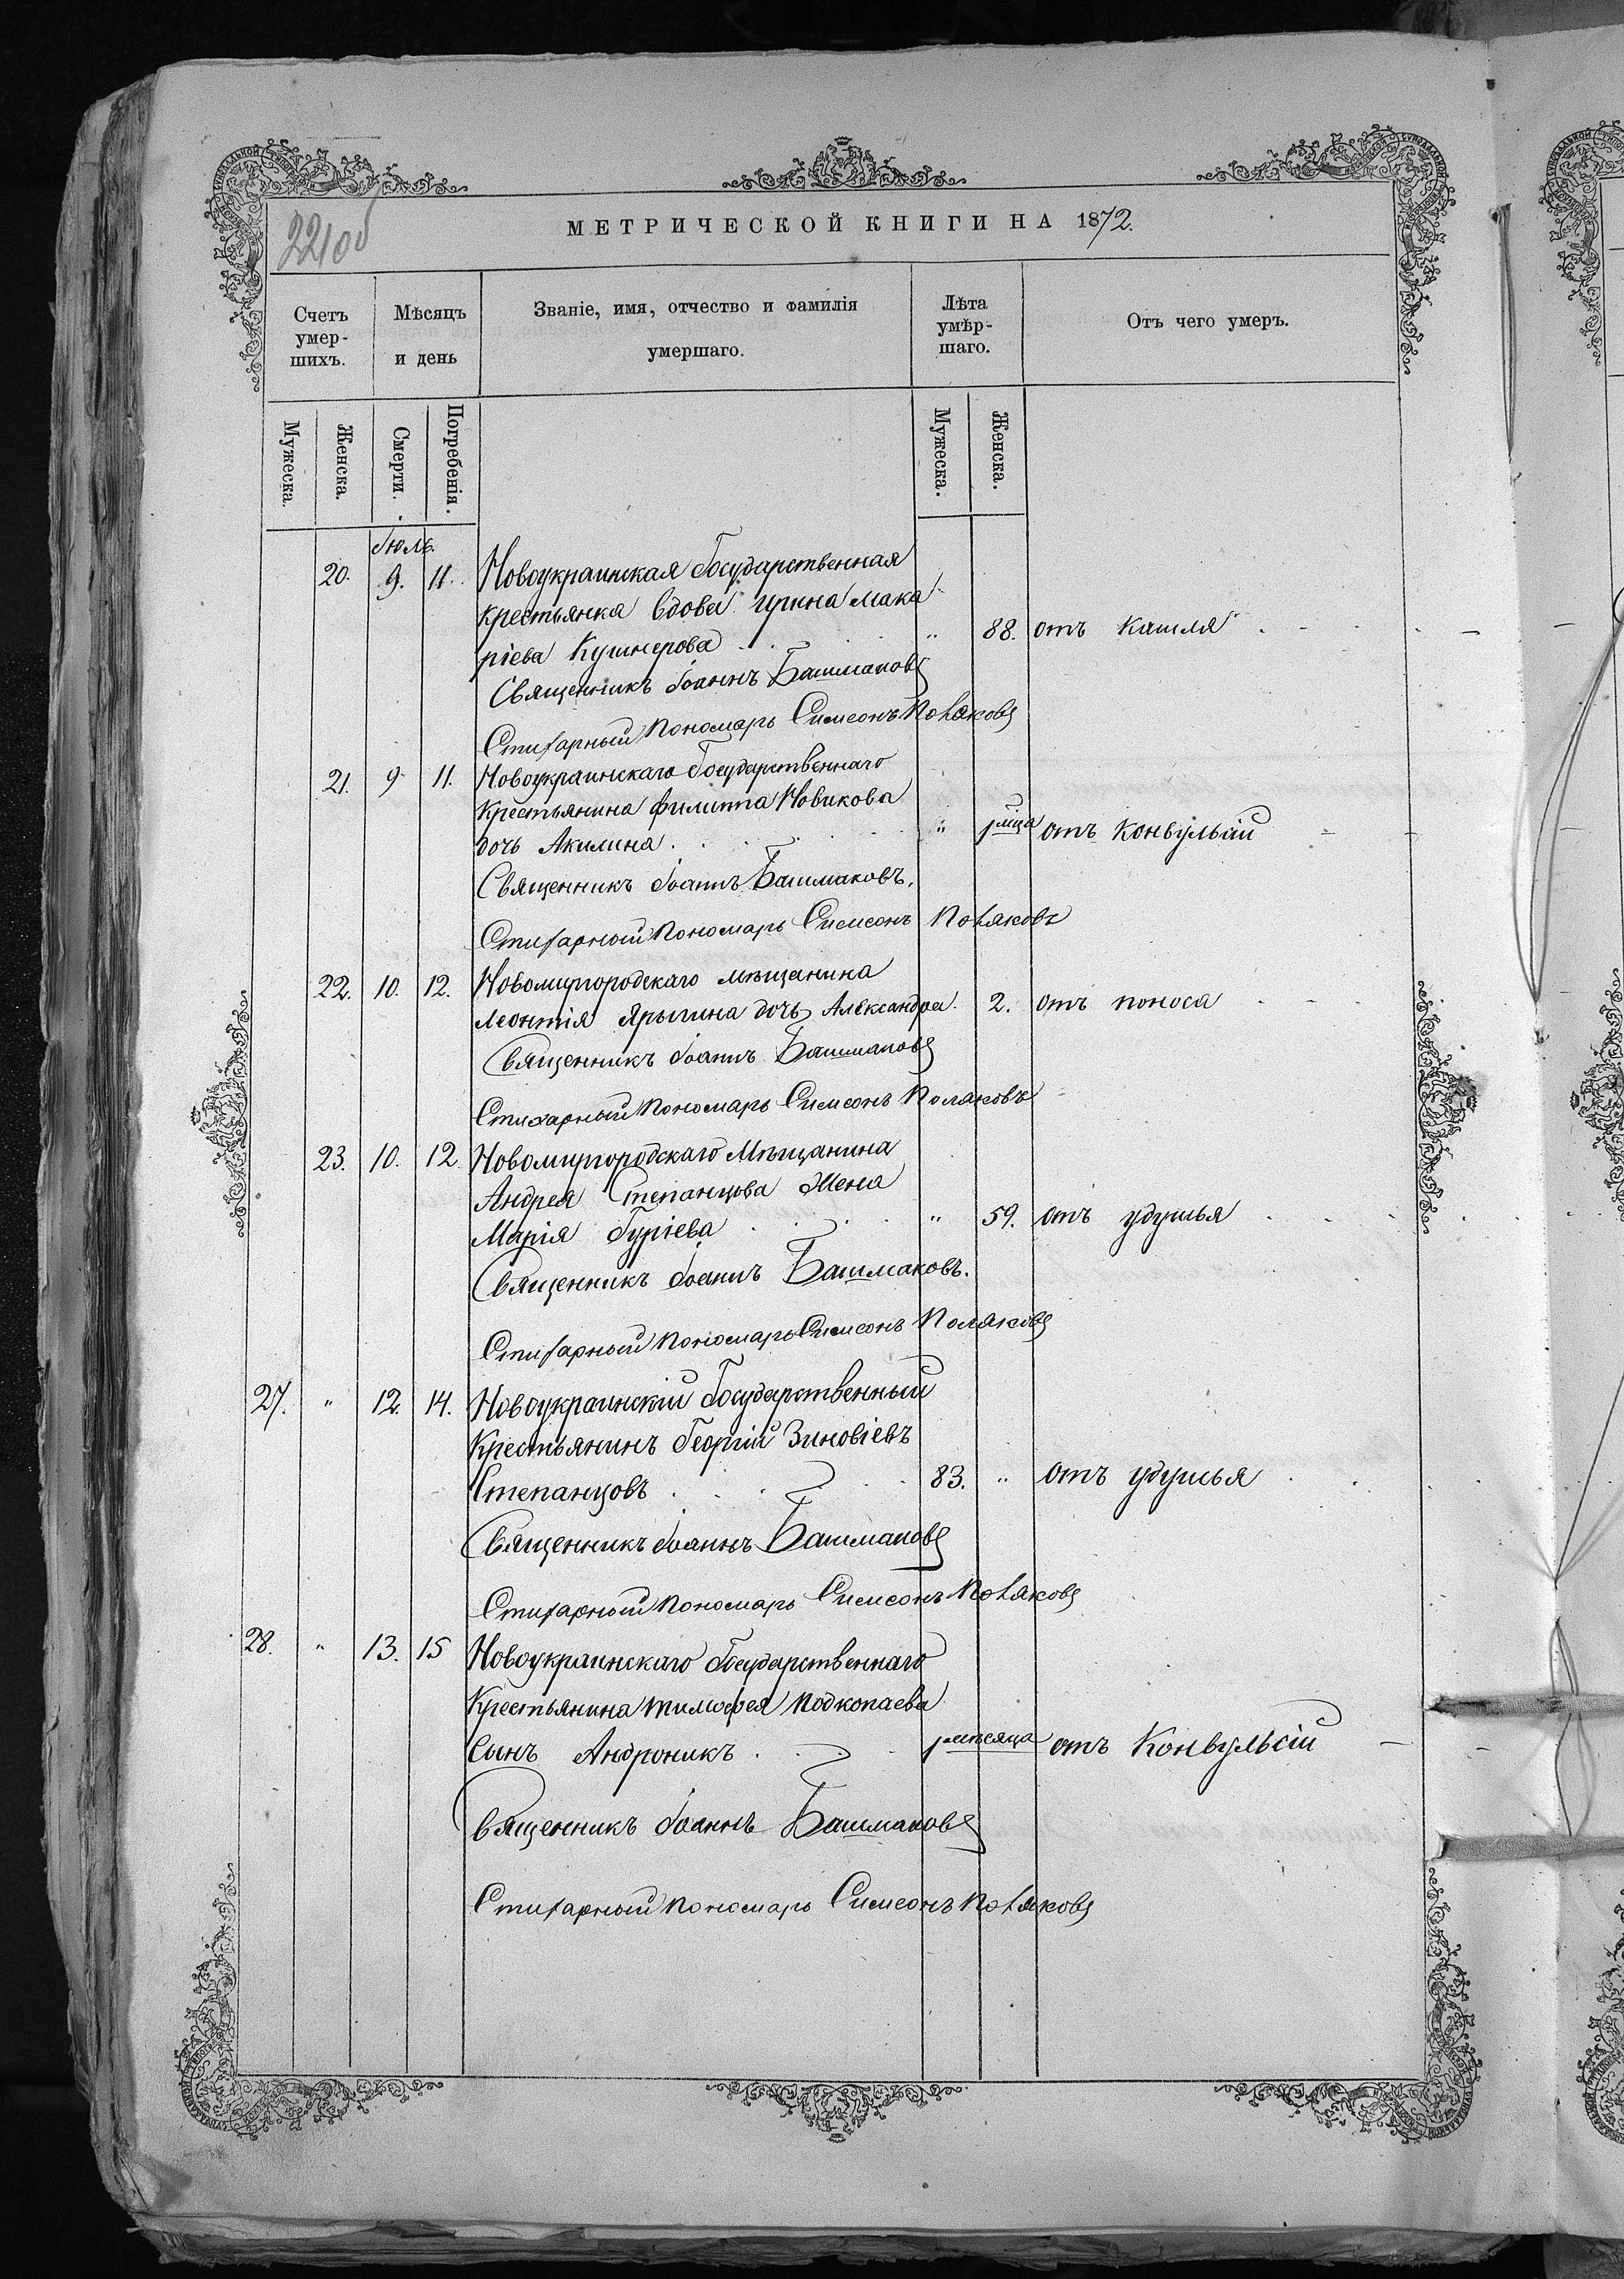 221об
МЕТРИЧЕСКОЙ КНИГИ НА 1872.
Счетъ умершихъ.
Мѣсяцъ и день
Званіе, имя, отчество и фамилія умершаго.
Лѣта умѣршаго.
Отъ чего умеръ.
Мужеска.
Женска.
Смерти.
Погребенія.
Мужеска.
Женска.
Іюль.
20. 9. 11. Новоукраинская Государственная
крестьянка вдова Ирина Мака
ріева Кушнерова " 88. отъ кашля
Священникъ Іоаннъ Башмаковъ
Стихарный Пономарь Симеонъ Поляковъ
21. 9 11. Новоукраинскаго Государственнаго
Крестьянина Филиппа Новикова
дочь Акилина. " 1 мца отъ Конвульсіи
Священникъ Іоаннъ Башмаковъ.
Стихарный Пономарь Симеонъ Поляковъ
22. 10. 12. Новомиргородскаго мѣщанина
Леонтія Ярыгина дочь Александра. 2. отъ поноса
Священникъ Іоаннъ Башмаковъ
Стихарный Пономарь Симеонъ Поляковъ
23. 10. 12. Новомиргородскаго Мѣщанина
Андрея Степанцова Жена
Марія Гуріева " 59. отъ удушья
Священникъ Іоаннъ Башмаковъ.
Стихарный Пономарь Симеонъ Поляковъ
27. " 12. 14. Новоукраинскій Государственный
Крестьянинъ Георгій Зиновіевъ
Степанцовъ 83. " отъ удушья
Священникъ Іоаннъ Башмаковъ
Стихарный Пономарь Симеонъ Поляковъ
28. " 13. 15 Новоукраинскаго Государственнаго
Крестьянина Тимофея Подкопаева
Сынъ Андроникъ 1 мѣсяца отъ Конвульсіи
Священникъ Іоаннъ Башмаковъ
Стихарный Пономарь Симеонъ Поляковъ